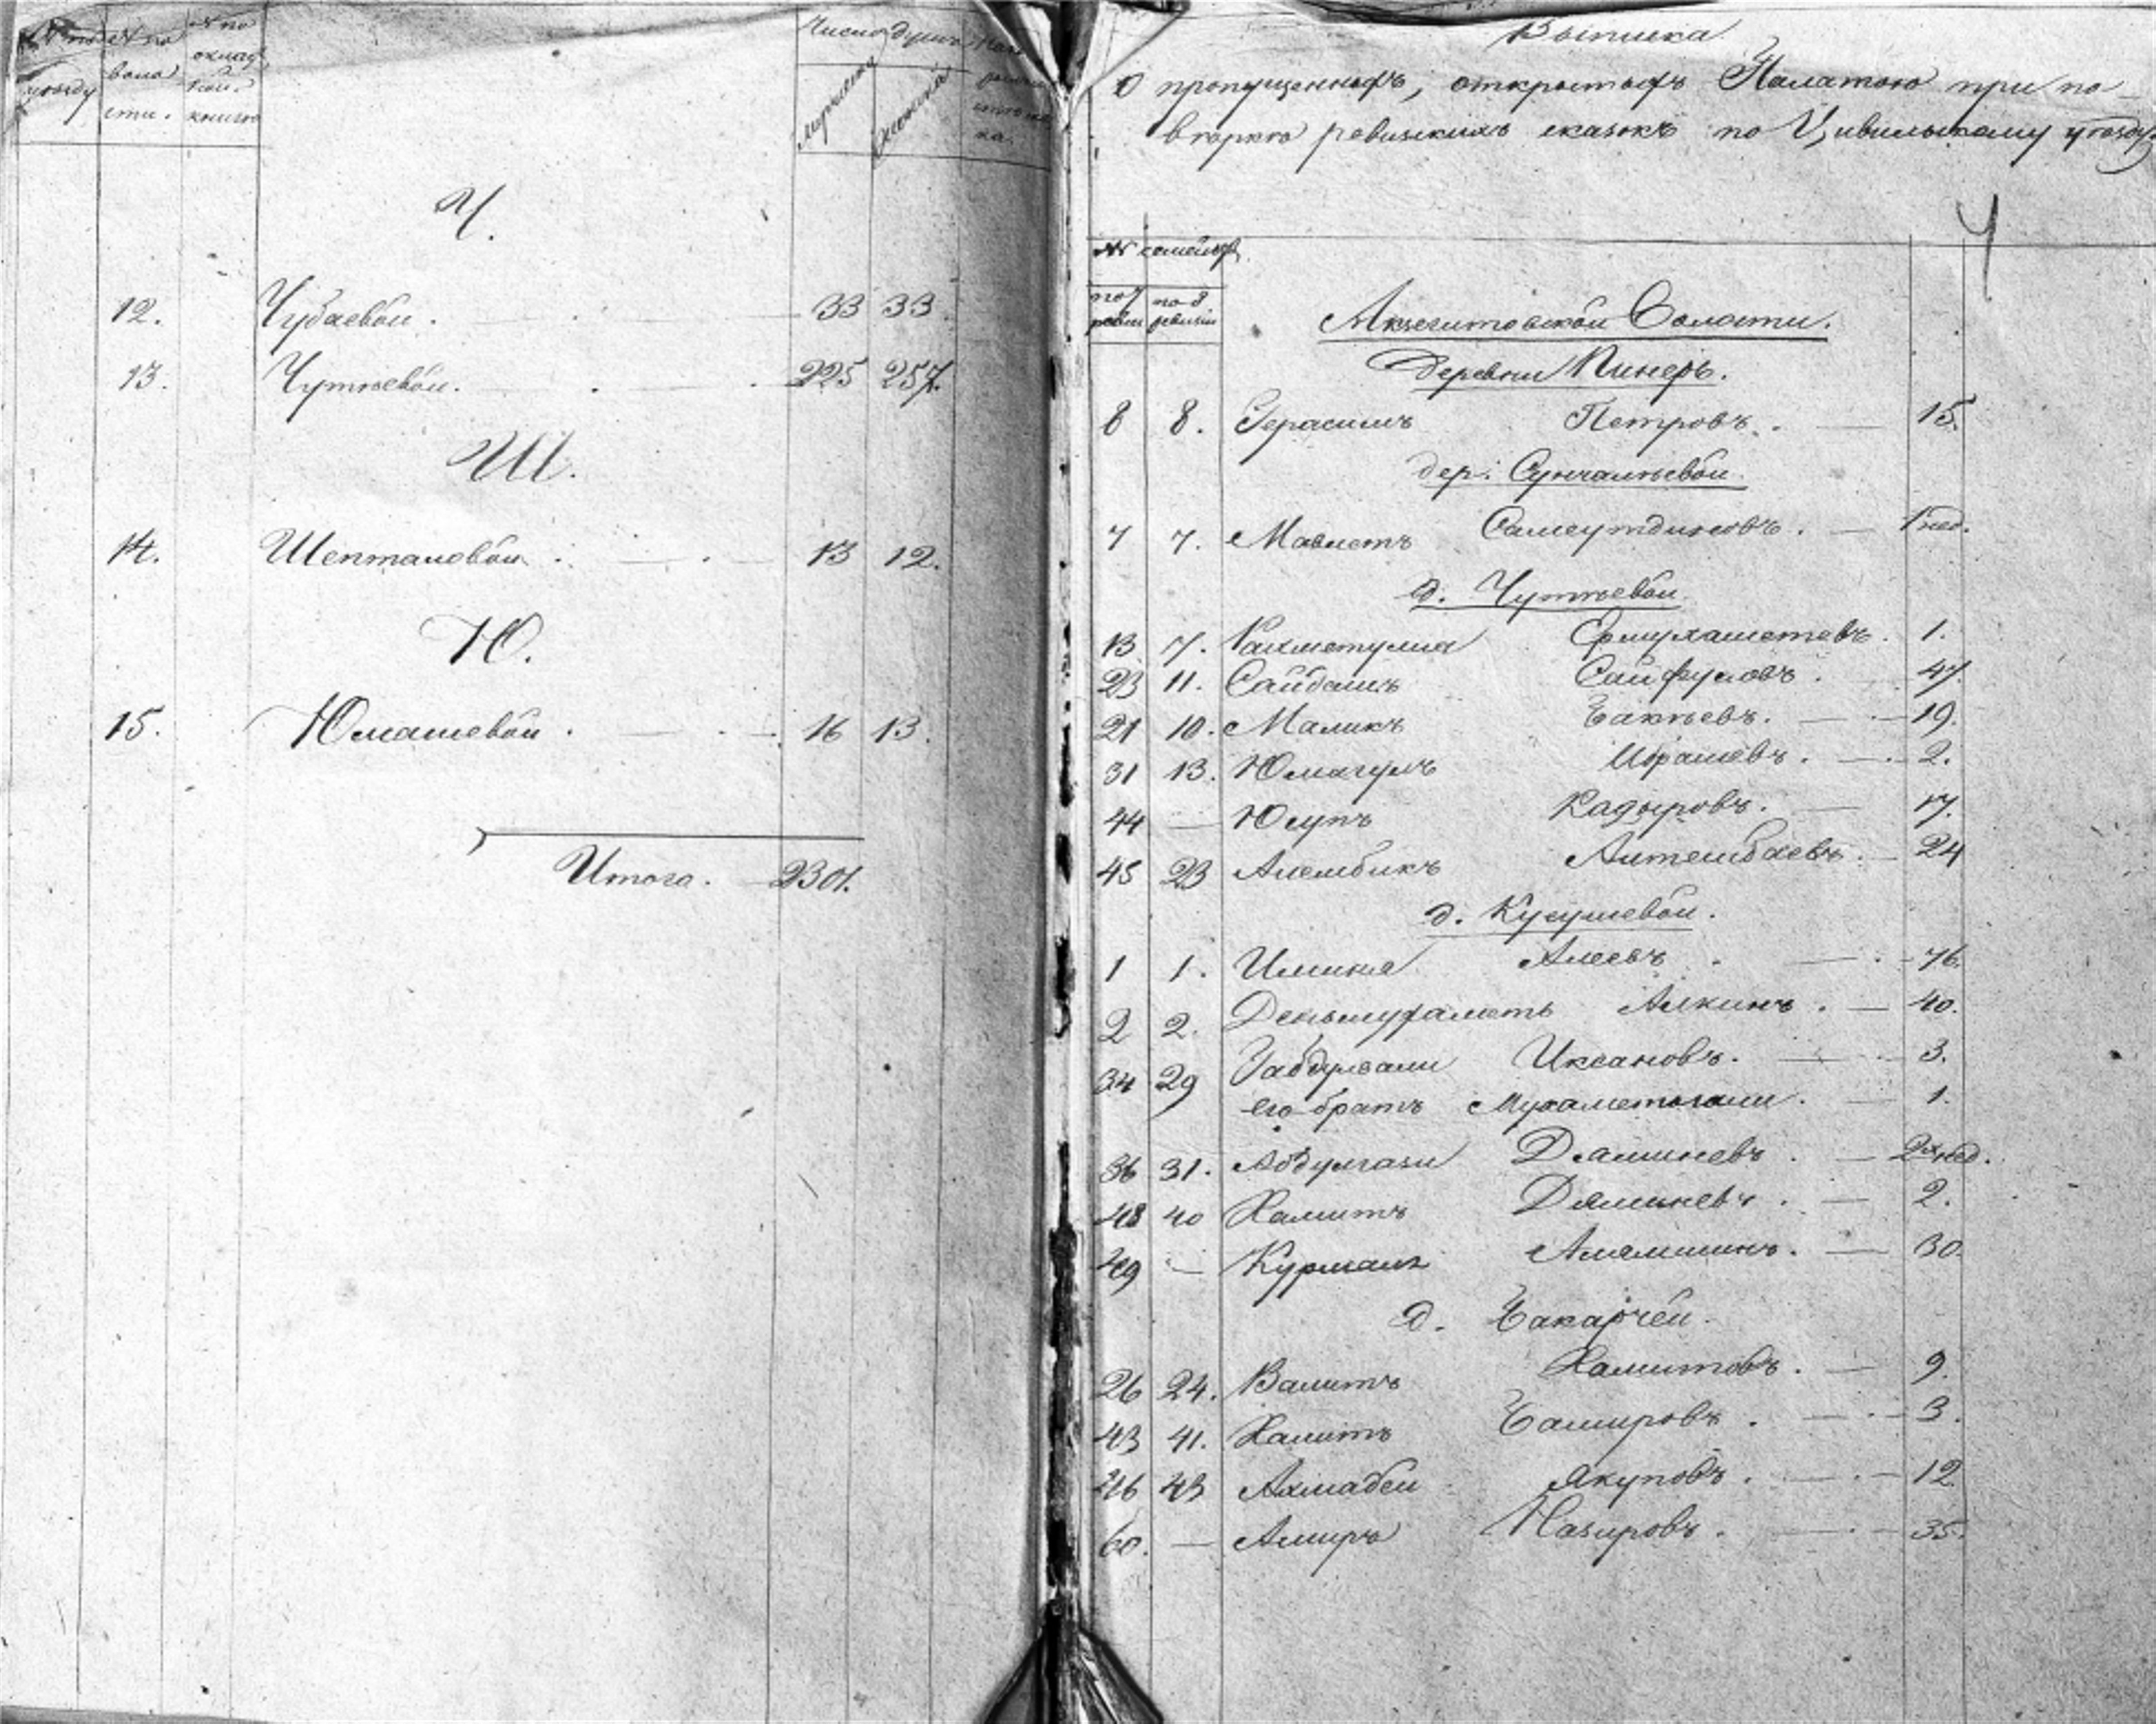 № по уѣзду № по воло сти. № по оклад ной книгѣ Число душъ
мужеска женска
Ч.
12. Чубаевой. 33 33.
13. Чутѣевой. 225 257.
Ш.
14. Шептаховой. 13 12.
Ю.
15. Юмашевой. 16 13.
Итого. 2301.
Выписка
О пропущенныхъ, открытыхъ Палатою при по-
вѣркѣ ревизскихъ сказокъ по Цивильскому уѣзду.
4
№№ семействъ
по 7 ревизіи по 8 ревизіи
Акзегитовской Волости.
Деревни Пинеръ.
8 8. Герасимъ Петровъ. 15.
дер: Сунчалѣевой.
7 7. Мавлетъ Самеутдиновъ. 1 нед.
д. Чутѣевой.
13 7. Рахметулла Ермухаметевъ. 1.
23 11. Сайдашъ Сайфуловъ. 47.
21 10. Маликъ Бакѣевъ. 19.
31 13. Юмагулъ Ибрашевъ. 2.
44 — Юсупъ Кадыровъ. 17.
45 23 Алембикъ Антембаевъ. 24
д. Кусюмевой.
1 1. Илика Алеевъ 76.
2 2. Деньмухаметь Алкинъ. 40.
34 29 Габдулвали Иксановъ. 3.
его братъ Мухаметогали. 1.
36 31. Абдулгази Даминевъ. 2х нед.
48 40 Хамитъ Даминевъ. 2.
49 — Курмашъ Алямшинъ. 30.
д. Бакарчей.
26 24. Валитъ Хамитовъ. 9.
43 41. Хамитъ Башировъ. 3.
46 43 Ахмадей Якуповъ. 12
60. — Амиръ Назировъ. 35.